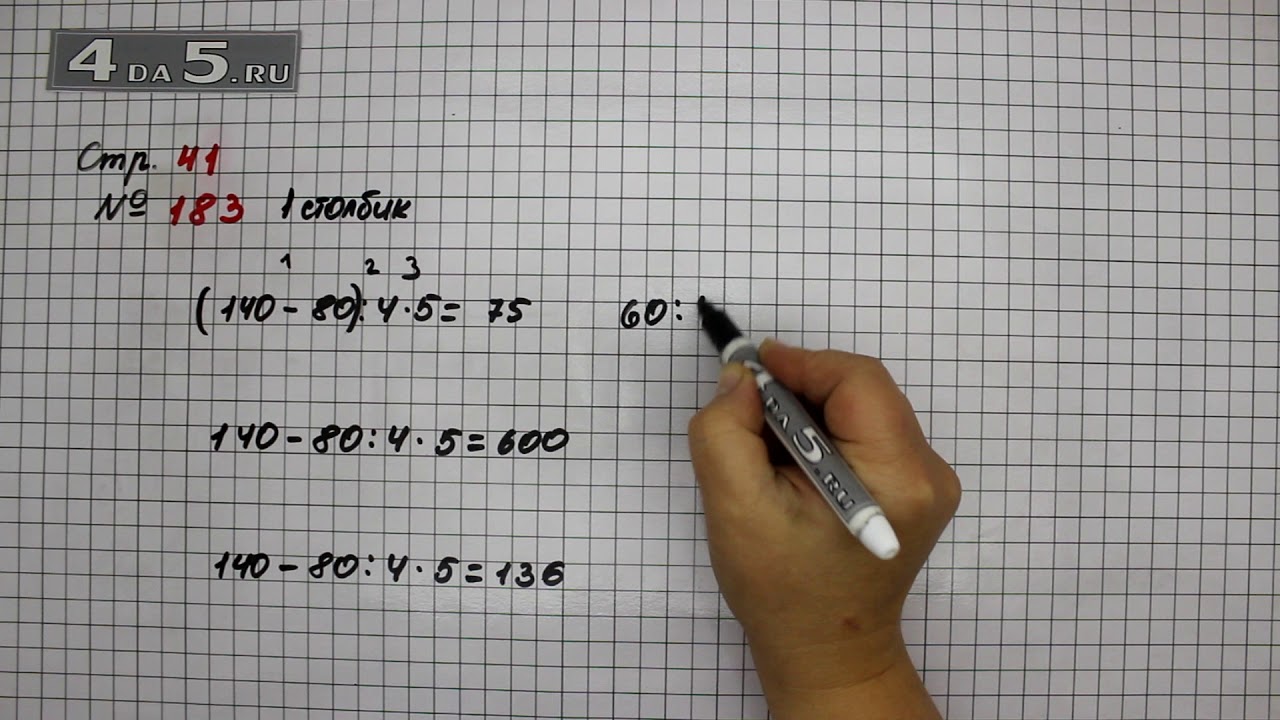 4 DA 5.RU
Стр. 41
№ 183 1 столбик
1 2 3
(140 - 80) : 4 · 5 = 75 60 :
140 - 80 : 4 · 5 = 600
140 - 80 : 4 · 5 = 136
DA 5.RU